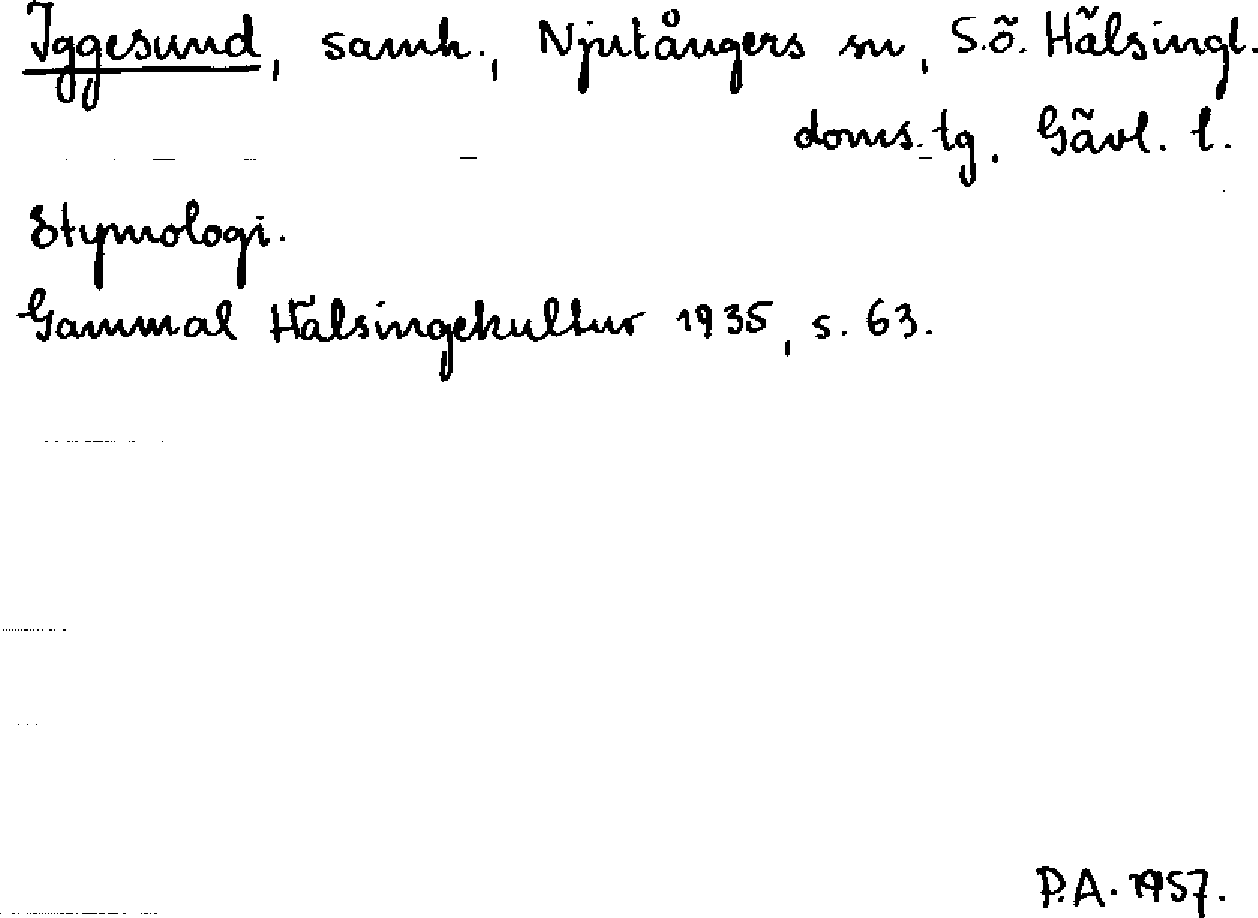 Iggesund, samh., Njutångers sn, S.ö. Hälsingl.
doms.tg. Gävl. l.
Etymologi.
Gammal Hälsingekultur 1935, s. 63.
P.A. 1957.